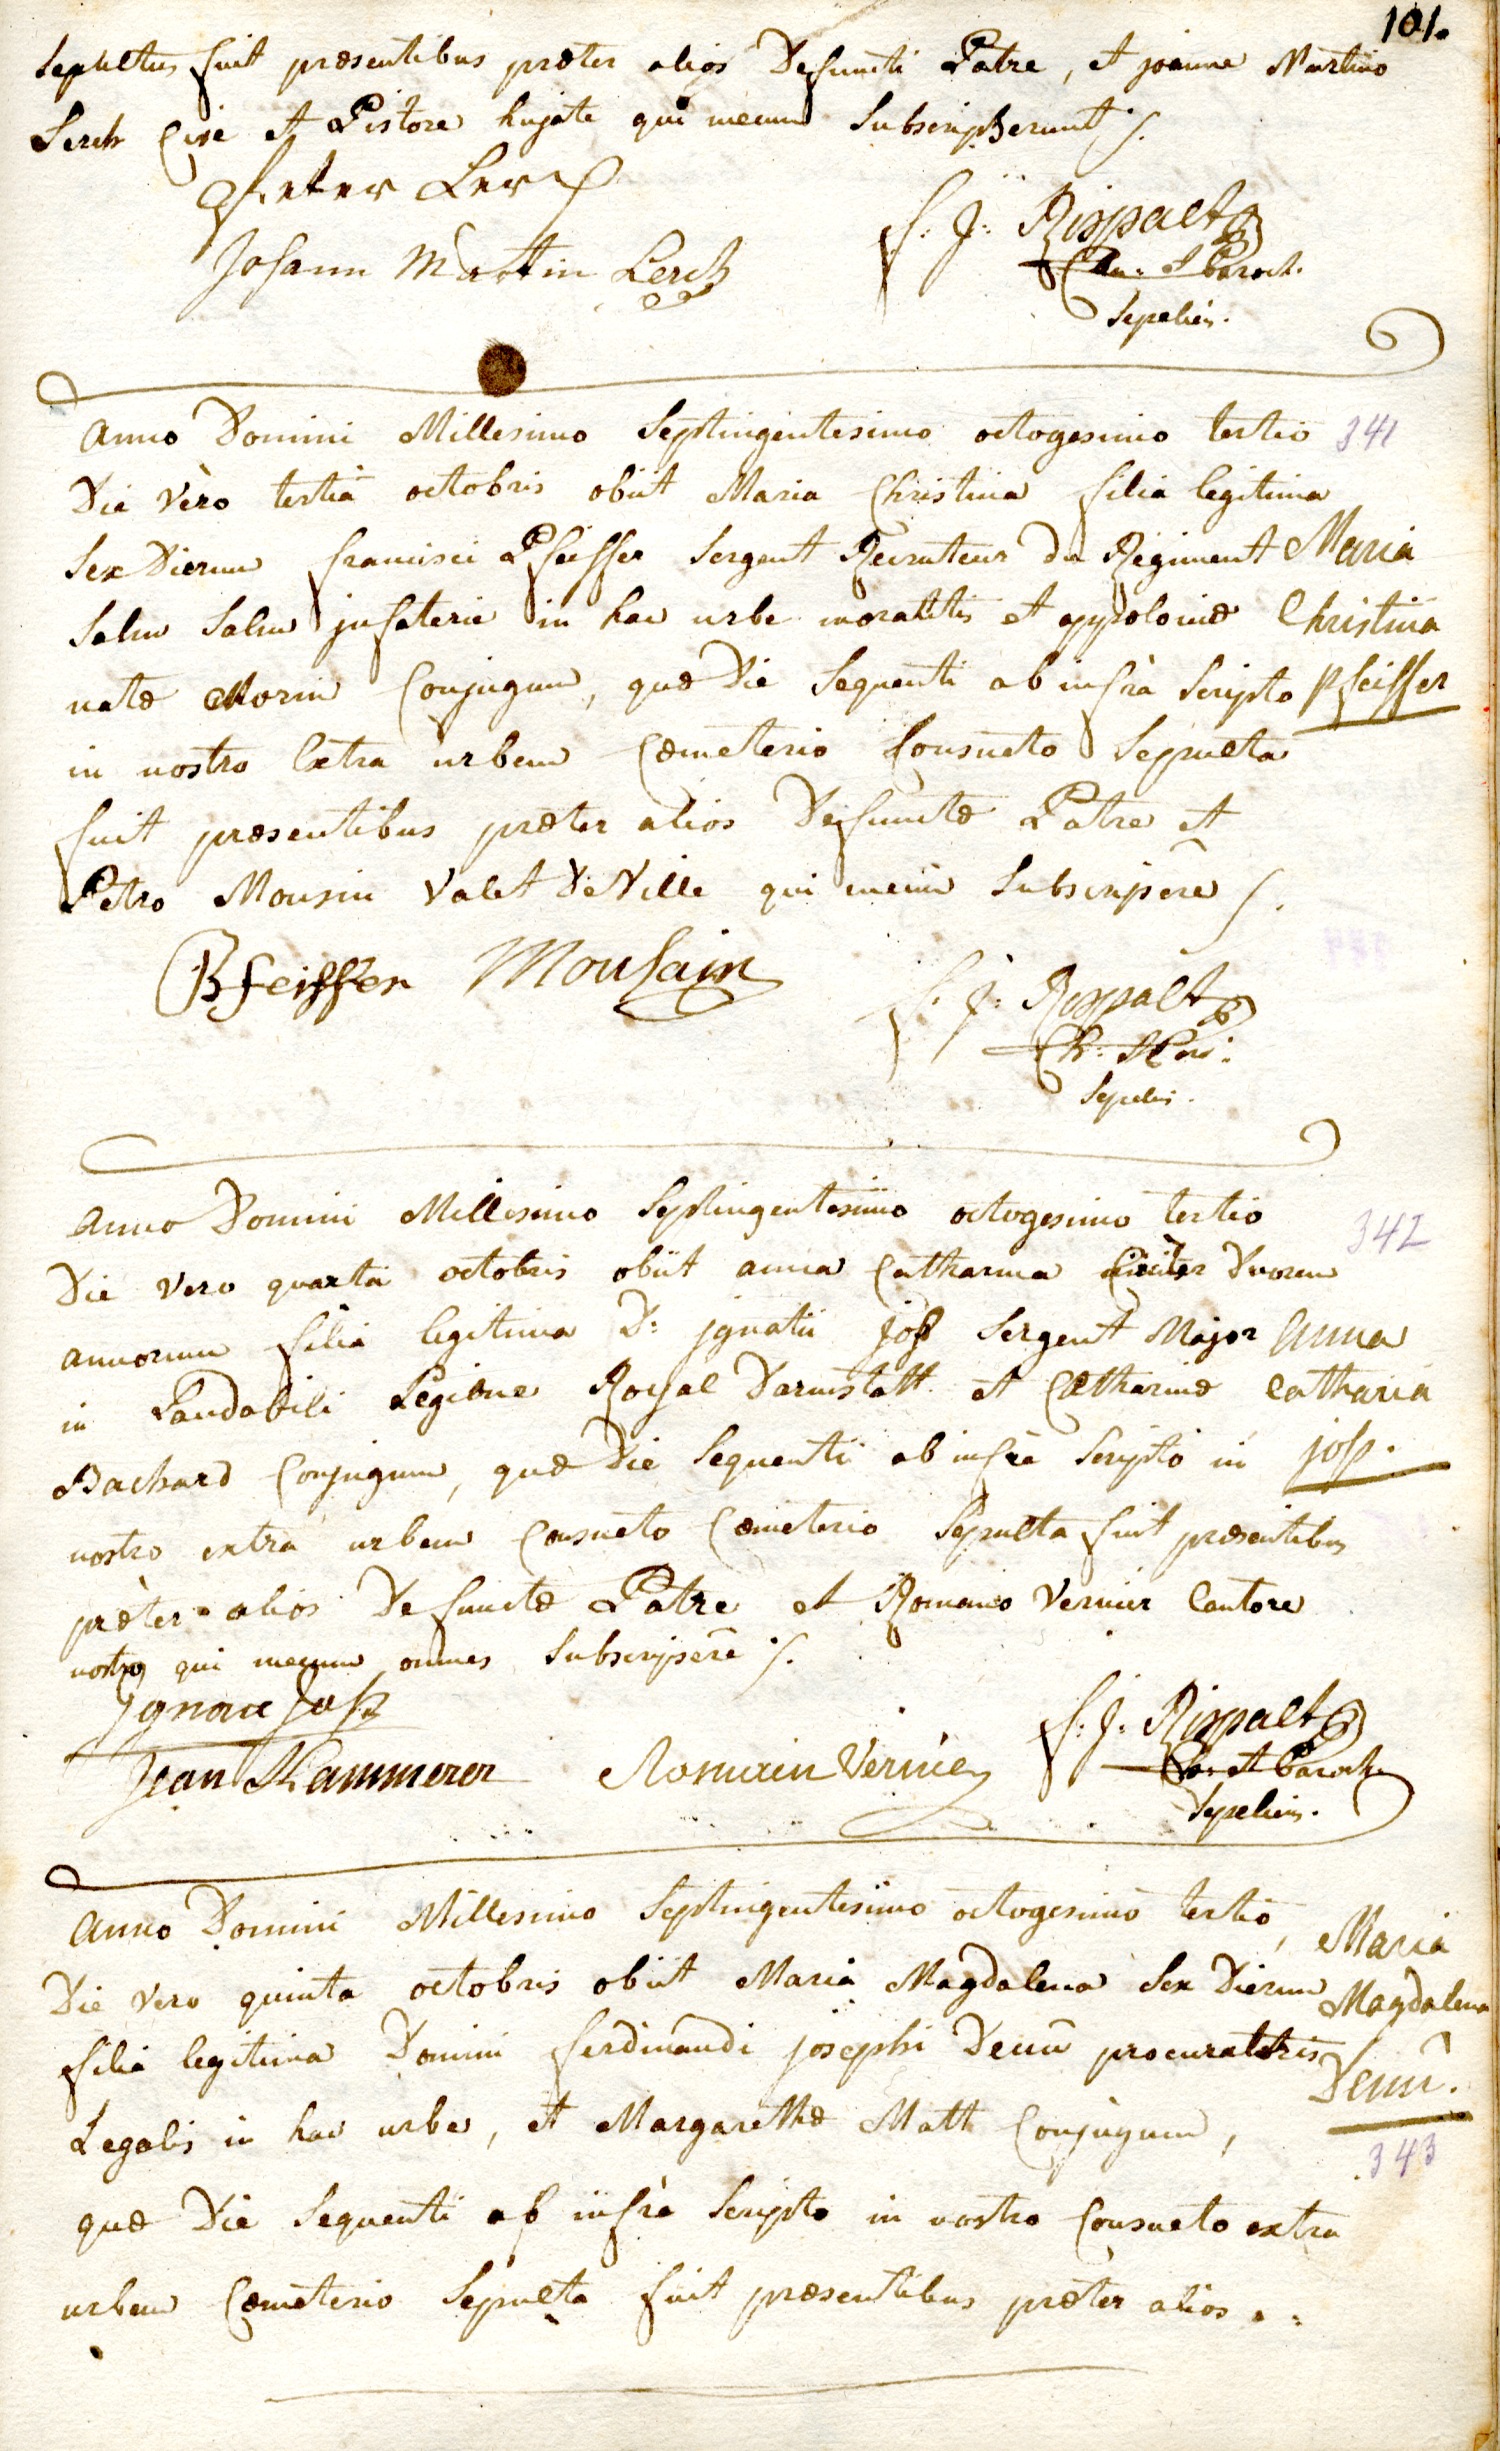 101.
sepultus fuit præsentibus præter alios Defuncti Patre, et joanne Martino
Lerch Cive et Pistore hujate qui mecum Subscripserunt ./.
Peter Lerch
Johann Martin Lerch
f. J: Rispalt
Can: & Paroch.
Sepeliens.
Anno Domini Millesimo Septingentesimo octogesimo tertio 341
Die Vero tertiâ octobris obiit Maria Christina filia legitima
Sex Dierum francisci Pfeiffer Sergent Recruteur du Regiment Maria
Salm Salm jnfaterie in hac urbe morantis et appoloniæ Christina
natæ Morin Conjugum, quæ Die Sequenti ab infrà Scripto Pfeiffer
in nostro Extra urbem Cœmeterio Consueto Sepulta
fuit præsentibus præter alios Defunctæ Patre et
Petro Mousin Valet De Ville qui mecum Subscripsere ./.
Pfeiffer Mousain
f. J: Rispalt
Ch: & Par:
Sepeliens.
Anno Domini Millesimo Septingentesimo octogesimo tertio 342
Die Vero quarta octobris obiit anna Catharina Circiter Duorum
annorum filia legitima D: jgnatii joß Sergent Major Anna
in Laudabili Legione Royal Darmstatt et Catharinæ Catharia
Bachard Conjugum, quæ Die Sequenti ab infrà Scripto in joß.
nostro extra urbem Consueto Cœmeterio Sepulta fuit præsentibus
præter alios Defunctæ Patre et Romano Vernier Cantore
nostro qui mecum omnes Subscripsere ./.
Ignace Joß
Jean Kammerer Romain Vernier
f. J: Rispalt
Can: et Paroch.
Sepeliens.
Anno Domini Millesimo Septingentesimo octogesimo tertio, Maria
Die Vero quinta octobris obiit Maria Magdalena Sex Dierum Magdalena
filia legitima Domini ferdinandi josephi Denū procuratoris Denū.
Legalis in hac urbe, et Margarethæ Matt Conjugum,
343
quæ Die Sequenti ab infrà Scripto in nostro Consueto extra
urbem Cœmeterio Sepulta fuit præsentibus præter alios